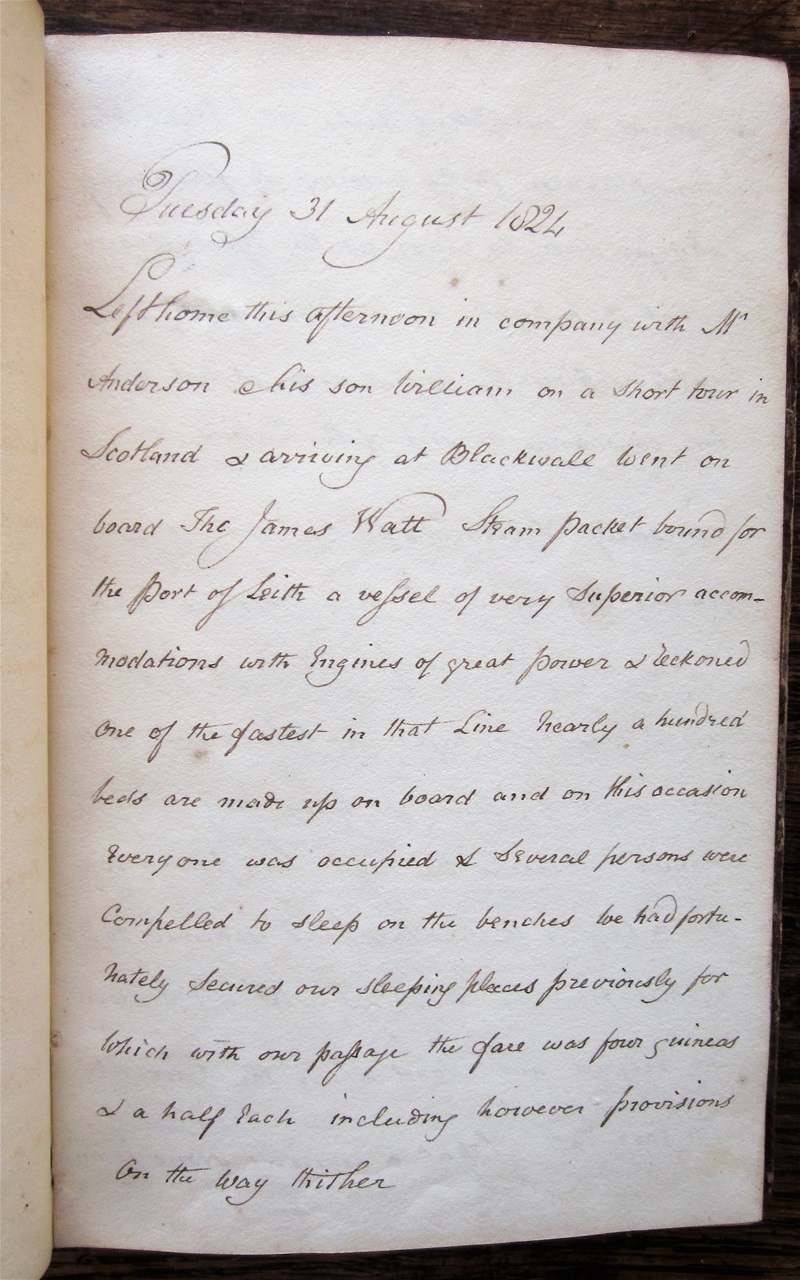 Tuesday 31 August 1824
Left home this afternoon in company with Mr
Anderson & his son William on a Short tour in
Scotland & arriving at Blackwall went on
board The James Watt Steam packet bound for
the Port of Leith a vessel of very Superior accom-
modations with Engines of great power & reckoned
one of the fastest in that Line Nearly a hundred
beds are made up on board and on this occasion
Every one was occupied & Several persons were
Compelled to sleep on the benches We had fortu-
nately Secured our sleeping places previously for
which with our passage the fare was four guineas
& a half Each including however provisions
On the way thither